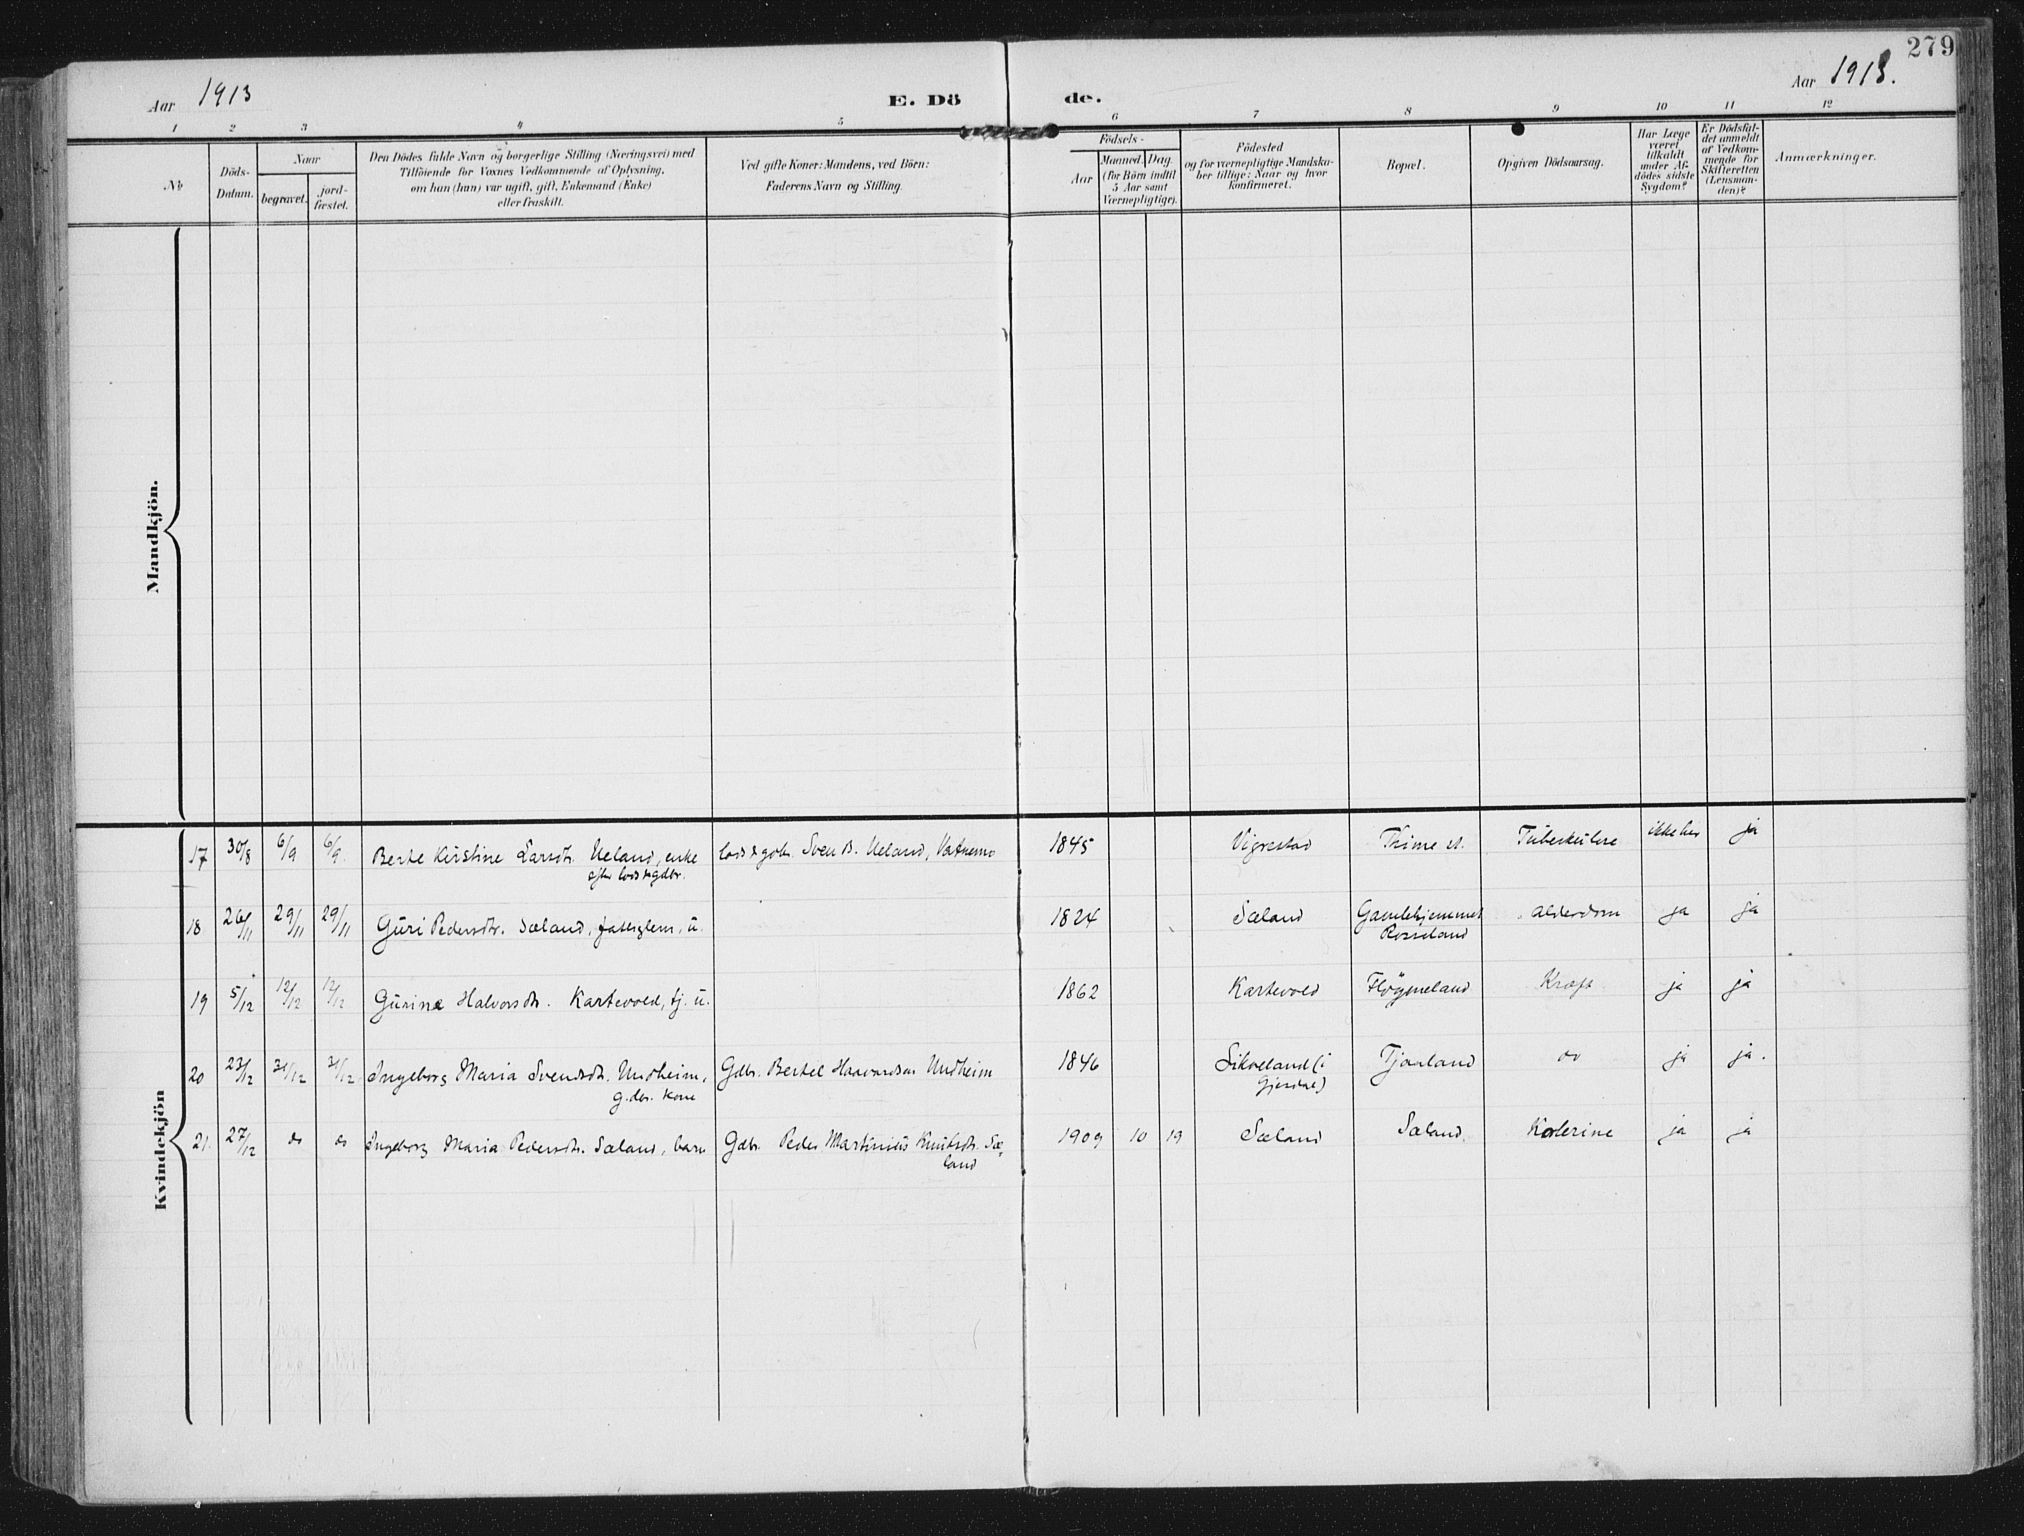 279
Aar 1913
E. Dö
de.
Aar 1913.
1 2 3 4 5 6 7 8 9 10 11 12
No
Döds-
Datum.
Naar
begravet.
jord-
fæstet.
Den Dödes fulde Navn og borgerlige Stilling (Næringsvei) med
Tilföiende for Voxnes Vedkommende af Oplysning,
om han (hun) var ugift, gift, Enkemand (Enke)
eller fraskilt.
Ved gifte Koner: Mandens, ved Börn:
Faderens Navn og Stilling.
Födsels-
Aar
Maaned. Dag.
(for Börn indtil
5 Aar samt
Værnepligtige).
Födested
og for værnepligtige Mandska-
ber tillige: Naar og hvor
konfirmeret.
Bopæl.
Opgiven Dödsaarsag.
Har Læge
været
tilkaldt
under Af-
dödes sidste
Sygdom?
Er Dödsfal-
det anmeldt
af Vedkom-
mende for
Skifteretten
(Lensman-
den)?
Anmærkninger.
Mandkjön.
Kvindekjön
17 30/8 6/9 6/9. Berte Kirstine Larsdtr. Ueland, enke Sven B. Ueland, 1845 Vigrestad Thime st. Tuberkulose ikke her ja
efter
18 26/11 29/11 29/11 Guri Pedersdtr. Sæland, fattiglem, u. 1824 Sæland Gamlehjemmet Alderdom ja ja
Rosseland
19 5/12 12/12 12/12 Gurine Halvorsdtr. Kartevold, tj. u. 1862 Kartevold Höyneland Kræft ja ja
20 23/12 31/12 31/12 Ingeborg Maria Svendsdtr. Undheim, Gdbr. Bertel Haavardsen Undheim 1846 Sikveland (i Tjaaland do ja ja.
g.dbr. kone Gjesdal)
21. 27/12 do do Ingeborg Maria Pedersdtr. Sæland, barn Gdbr. Peder Martinius Knutsdtr. Sæ- 1909 10 19 Sæland Sæland. Kolerine ja ja
land